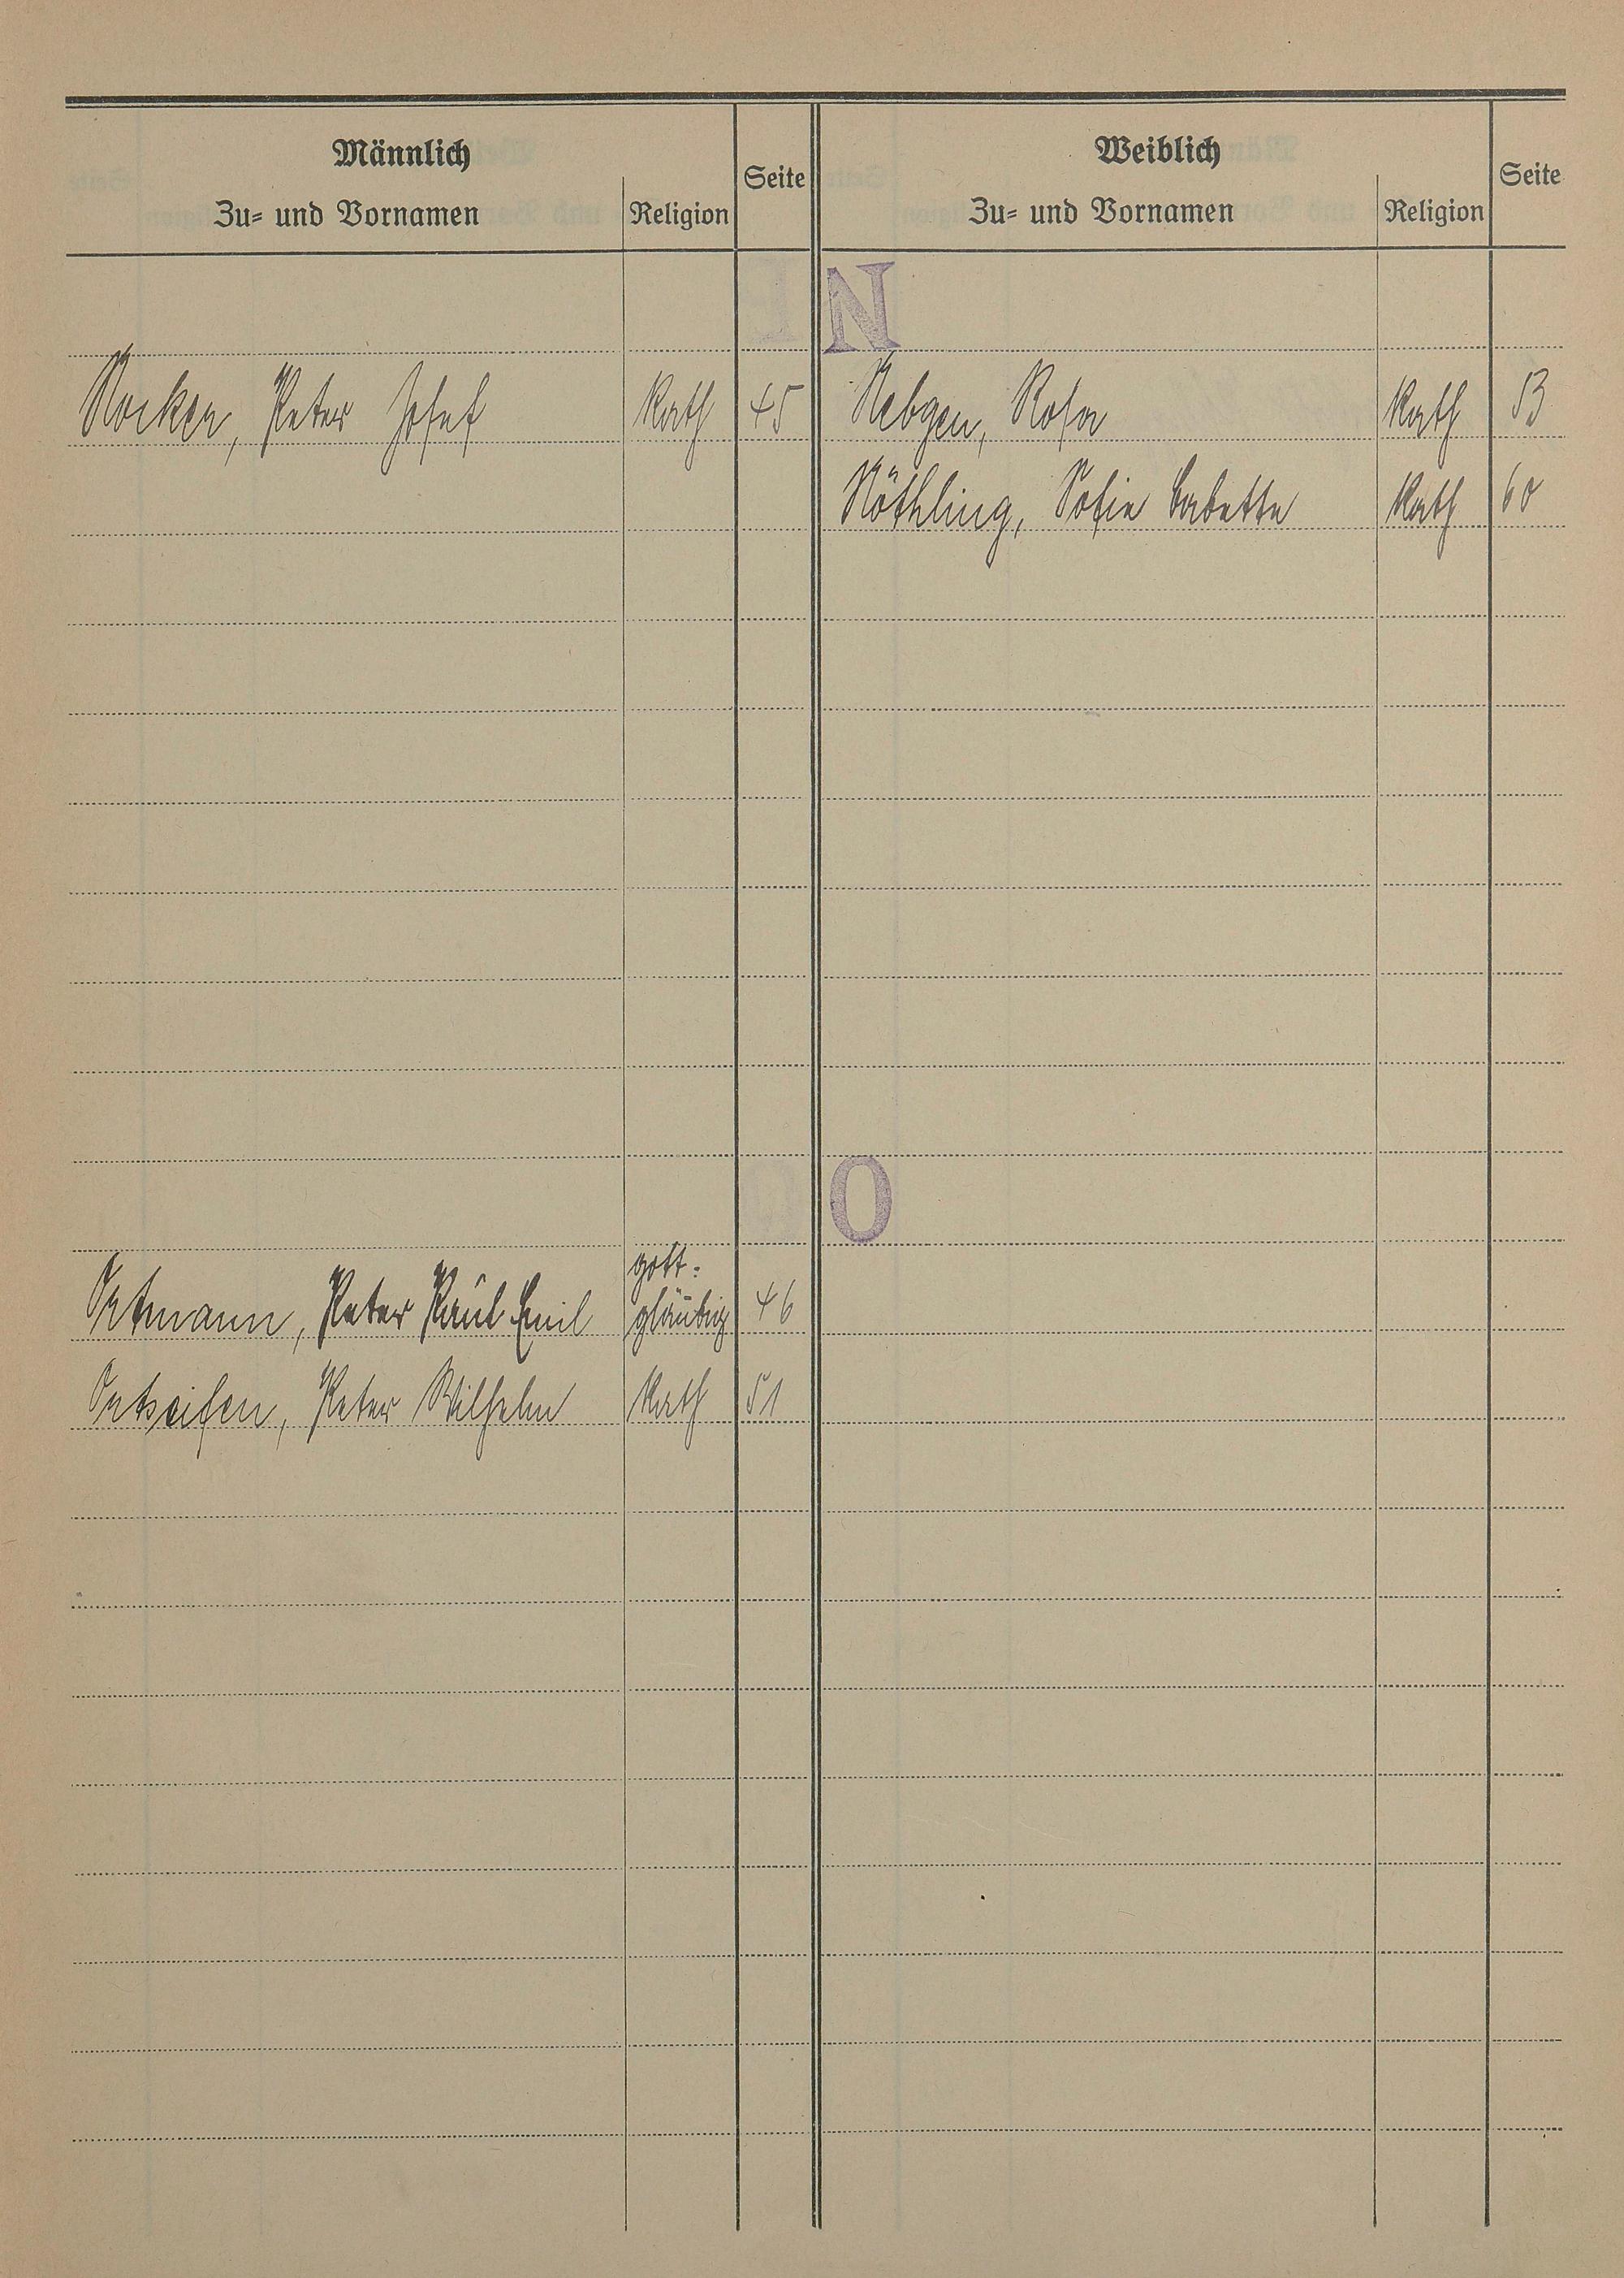 Männlich
Zu- und Vornamen Religion Seite
Weiblich
Zu- und Vornamen Religion Seite
N
Nocker, Peter Josef Kath 45
Nebgen, Rosa Kath 53
Nöthling, Sofie Babette Kath 60
O
gott-
Ortmann, Peter Paul Emil gläubig 46
Ortseifen, Peter Wilhelm Kath 51